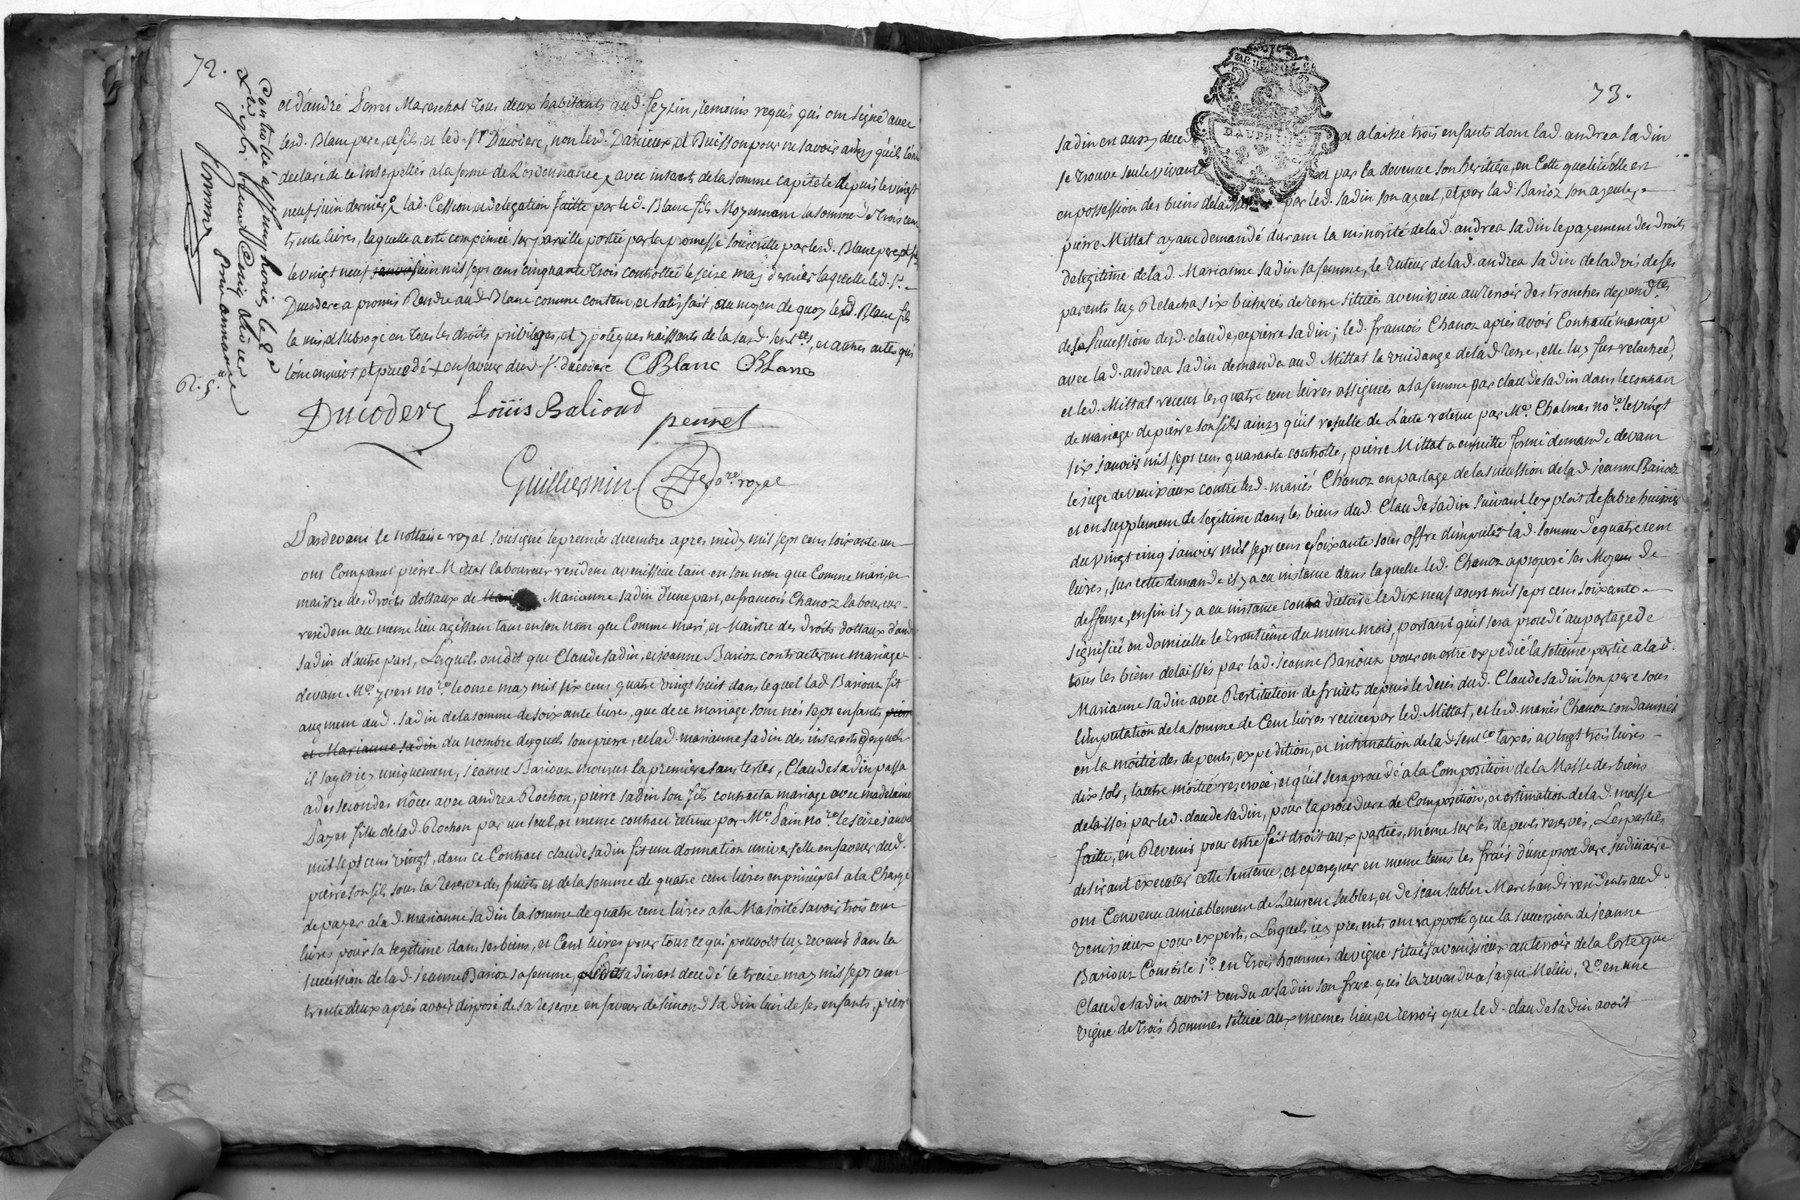 72.
et d'andré perret Mareschal tous deux habitants aud. feyzin, temoins requis qui ont signé avec
lesd. Blanc pere, et fils, et led. Sr. Ducoderc, non lesd. Darieux, et Buisson pour ne savoir ainsy qu'ils l'ont
declaré de ce interpellés a la forme de L'ordonnance, avec interets de la somme capitale depuis le vingt
neuf juin dernier, lad. Cession et delegation faitte par led. Blanc fils Moyennant la somme de trois cent
trente livres, laquelle a esté compensée sur pareille portée par la promesse souscritte par lesd. Blanc pere et fils
le vingt neuf juin mil sept cens cinquante trois controllée le seize may dernier laquelle led. Sr.
Ducoderc a promis Rendre aud. Blanc comme content, et satisfait, au moyen de quoy led. Blanc fils
la mis, et subrogé en tous les droits privileges, et ypoteques naissants de la susd. sentce, et autres actes qui
l'ont ensuivis et precedé en faveur dud. Sr. ducoderc CBlanc Blanc
Controllé a st simphorien le 2e
Xbre 1761 Reçu
pour annexe
R. 5.s
Ducoderc Louis Balioud
perret
Guillermin Nore. royal
Pardevant le nottaire royal soussigné le premier decembre apres midy mil sept cens soixante un
ont Comparus pierre Mittat laboureur resident a venissieu tant en son nom que Comme mari, et
maistre des droits dottaux de Marianne sadin d'une part, et francois Chanoz laboureur
resident au meme lieu agissant tant en son nom que Comme mari, et Maistre des droits dottaux d'andrea
sadin d'autre part, Lesquels ont dit que Claude sadin, et jeanne Barioz contracterent mariage
devant Me. yvert nore. le onze may mil six cens quatre vingt huit dans lequel lad. Barioux fit
augment dud. sadin de la somme de soixante livres, que de ce mariage sont nés sept enfants pierre
et Marianne sadin du nombre desquels sont pierre, et lad. marianne sadin des interets desquels
il s'agit icy uniquement, jeanne Barioux mourut la premiere sans tester, Claude sadin passa
a des secondes nôces avec andrea Rochon, pierre sadin son fils contracta mariage avec madelaine
Payet fille de lad. Rochon par un seul, et meme contract retenu par Me. Pain nore. le seize janvier
mil sept cens vingt, dans ce Contract claude sadin fit une donnation universelle en faveur dud.
pierre son fils sous la reserve des fruits et de la somme de quatre cent livres en principal a la Charge
de payer a lad. marianne sadin la somme de quatre cent livres a la Majorité savoir trois cent
livres pour sa legitime dans ses biens, et Cent livres pour tout ce qui pouvoit luy revenir dans la
succession de lad. jeanne Barioz sa femme, Claude sadin est decedé le treize may mil sept cent
trente deux aprés avoir disposé de sa reserve en faveur de simond sadin l'un de ses enfants, pierre
73.
DAUPHINE
sadin en aussy decedé et a laissé trois enfants dont lad. andrea sadin
se trouve seule vivante et par la devenue son heritiere, en Cette qualité elle est
en possession des biens delaissés par led. sadin son ayeul, et par lad. Barioz son ayeule,
pierre Mittat ayant demandé durant la minorité de lad. andrea sadin le payement des droits
de legitime de lad. Marianne sadin sa femme, le tuteur de lad. andrea sadin de l'advis de ses
parents luy Relacha six bicherées de terre situées a venissieu au terroir des tronches dependtes.
de la succession desd. claude, et pierre sadin; led. francois Chanoz aprés avoir Contracté mariage
avec lad. andrea sadin demanda aud. Mittat la vuidange de lad. terre, elle luy fut relachée,
et led. Mittat receut les quatre cent livres assignées a sa femme par claude sadin dans le contract
de mariage de pierre son fils ainsy qu'il resulte de L'acte retenu par Me. Chalmas nore. le vingt
six janvier mil sept cens quarante controllé, pierre Mittat a ensuitte formé demande devant
le juge de venissieux contre lesd. mariés Chanoz en partage de la succession de lad. jeanne Barioz
et en supplement de legitime dans les biens dud. Claude sadin suivant lexploit de fabre huissier
du vingt cinq janvier mil sept cens soixante sous offre d'imputer lad. somme de quatre cent
livres, sur cette demande il y a eu instance dans laquelle led. Chanoz a proposé ses Moyens de
deffense, enfin il y a eu instance contradictoire le dix neuf aoust mil sept cens soixante
signifiée en domicille le trentieme du meme mois, portant qu'il sera procedé au partage de
tous les biens delaissés par lad. jeanne Barioux pour en estre expedié la setieme partie a lad.
Marianne sadin avec Restitution de fruits depuis le decés dud. Claude sadin son pere sous
l'imputation de la somme de Cent livres receue par led. Mittat, et lesd. mariés Chanoz condamnés
en la moitié des depents, expedition, et intimation de lad. sentce. taxés a vingt trois livres
dix sols, l'autre moitié reservée, et qu'il sera procedé a la Composition de la Masse des biens
delaissés par led. claude sadin, pour la procedure de Composition, et estimation de lad. masse
faitte, en Revenir pour estre fait droit aux parties, même sur les depents reservés, Les parties
desirant executer cette sentence, et epargner en meme tems les frais d'une procedure judiciaire
ont Convenu amiablement de Laurent sublet, et de jean sublet Marchands residents aud.
venissieux pour experts, Lesquels icy presents ont rapporté que la succession de jeanne
Barioux Consiste 1o. en trois hommées de vigne situées a venissieux au terroir de la Coste que
Claude sadin avoit vendu a sadin son frere qui la revendu a jacque Melin, 2o. en une
vigne de trois hommes située aux memes lieu, et terroir que led. claude sadin avoit